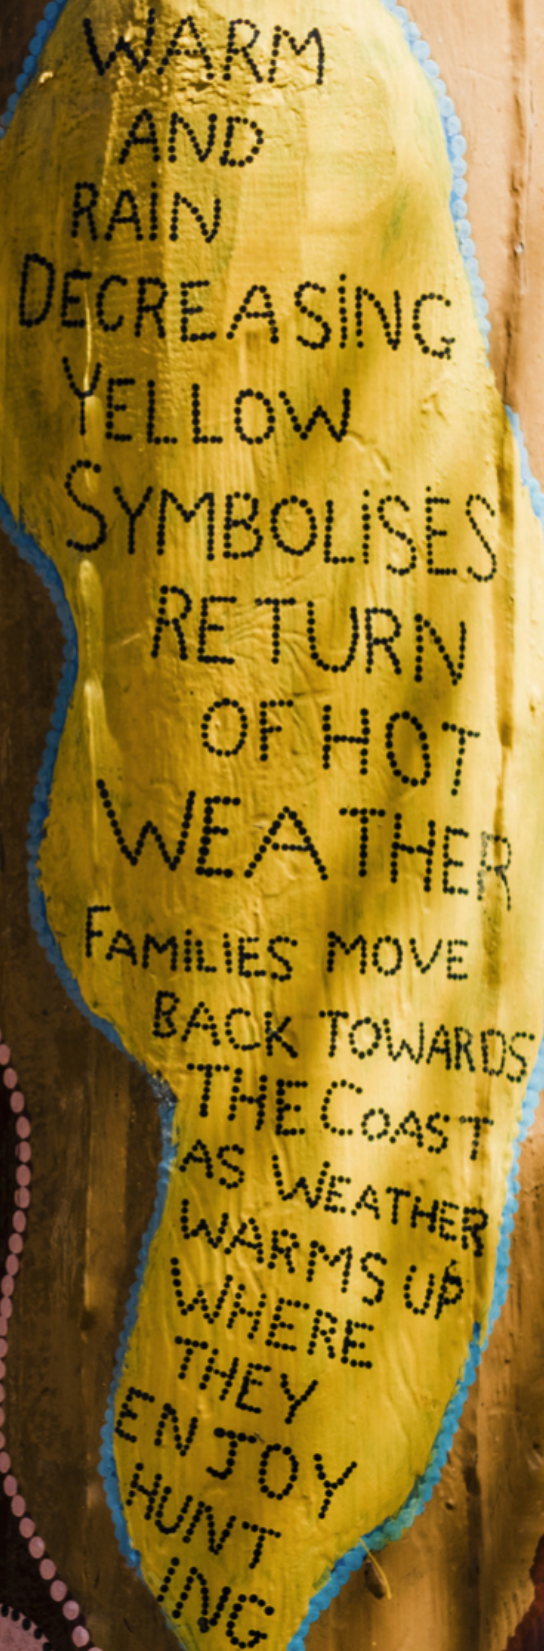 WARM
AND
RAIN
DECREASING
YELLOW
SYMBOLISES
RETURN
OF HOT
WEATHER
FAMILIES MOVE
BACK TOWARDS
THE COAST
AS WEATHER
WARMS UP
WHERE
THEY
ENJOY
HUNT
ING